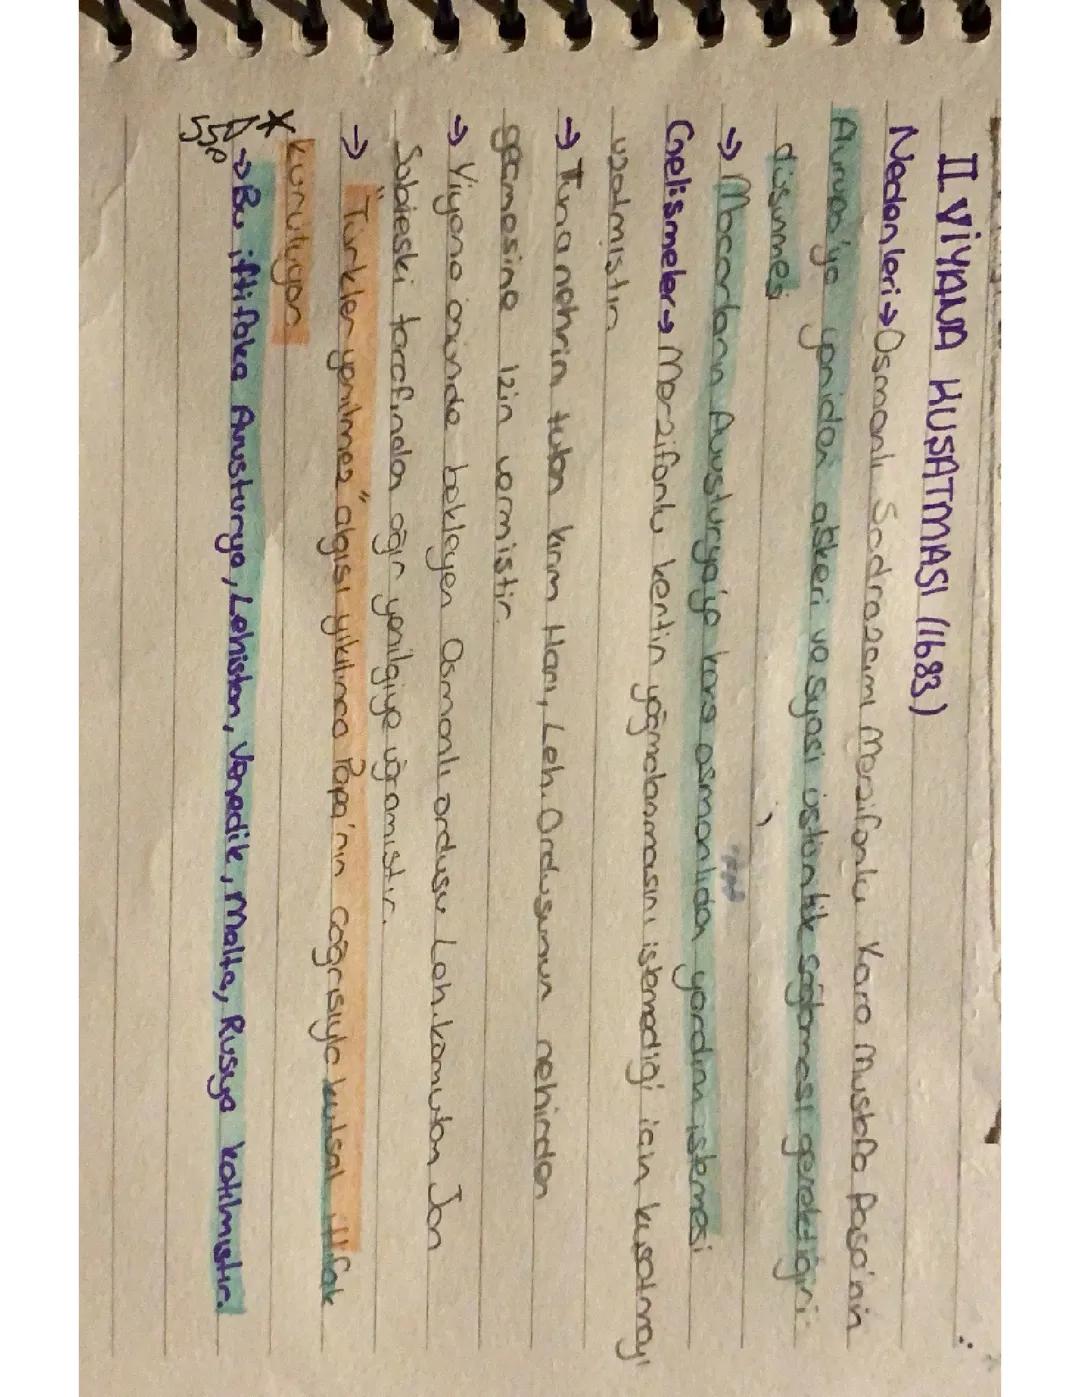 II. VİYANA KUŞATMASI (1683)
Nedenleri → Osmanlı Sadrazamı Merzifonlu Kara Mustafa Paşa'nın
Avrupa'ya yeniden askeri ve siyasi üstünlük sağlaması gerektiğini
düşünmesi
→ Macarların Avusturya'ya karşı osmanlıdan yardım istemesi
Gelişmeler → Merzifonlu kentin yağmalanmasını istemediği için kuşatmayı
uzatmıştır.
→ Tuna nehrin tutan kırım Hanı, Leh. Ordusunun nehirden
geçmesine izin vermiştir.
→ Viyana önünde bekleyen Osmanlı ordusu Leh. komutan Jan
Sobieski tarafından ağır yenilgiye uğramıştır.
→ "Türkler yenilmez" algısı yıkılınca Papa'nın çağrısıyla kutsal ittifak
* kuruluyor.
→ Bu ittifaka Avusturya, Lehistan, Venedik, Malta, Rusya katılmıştır.